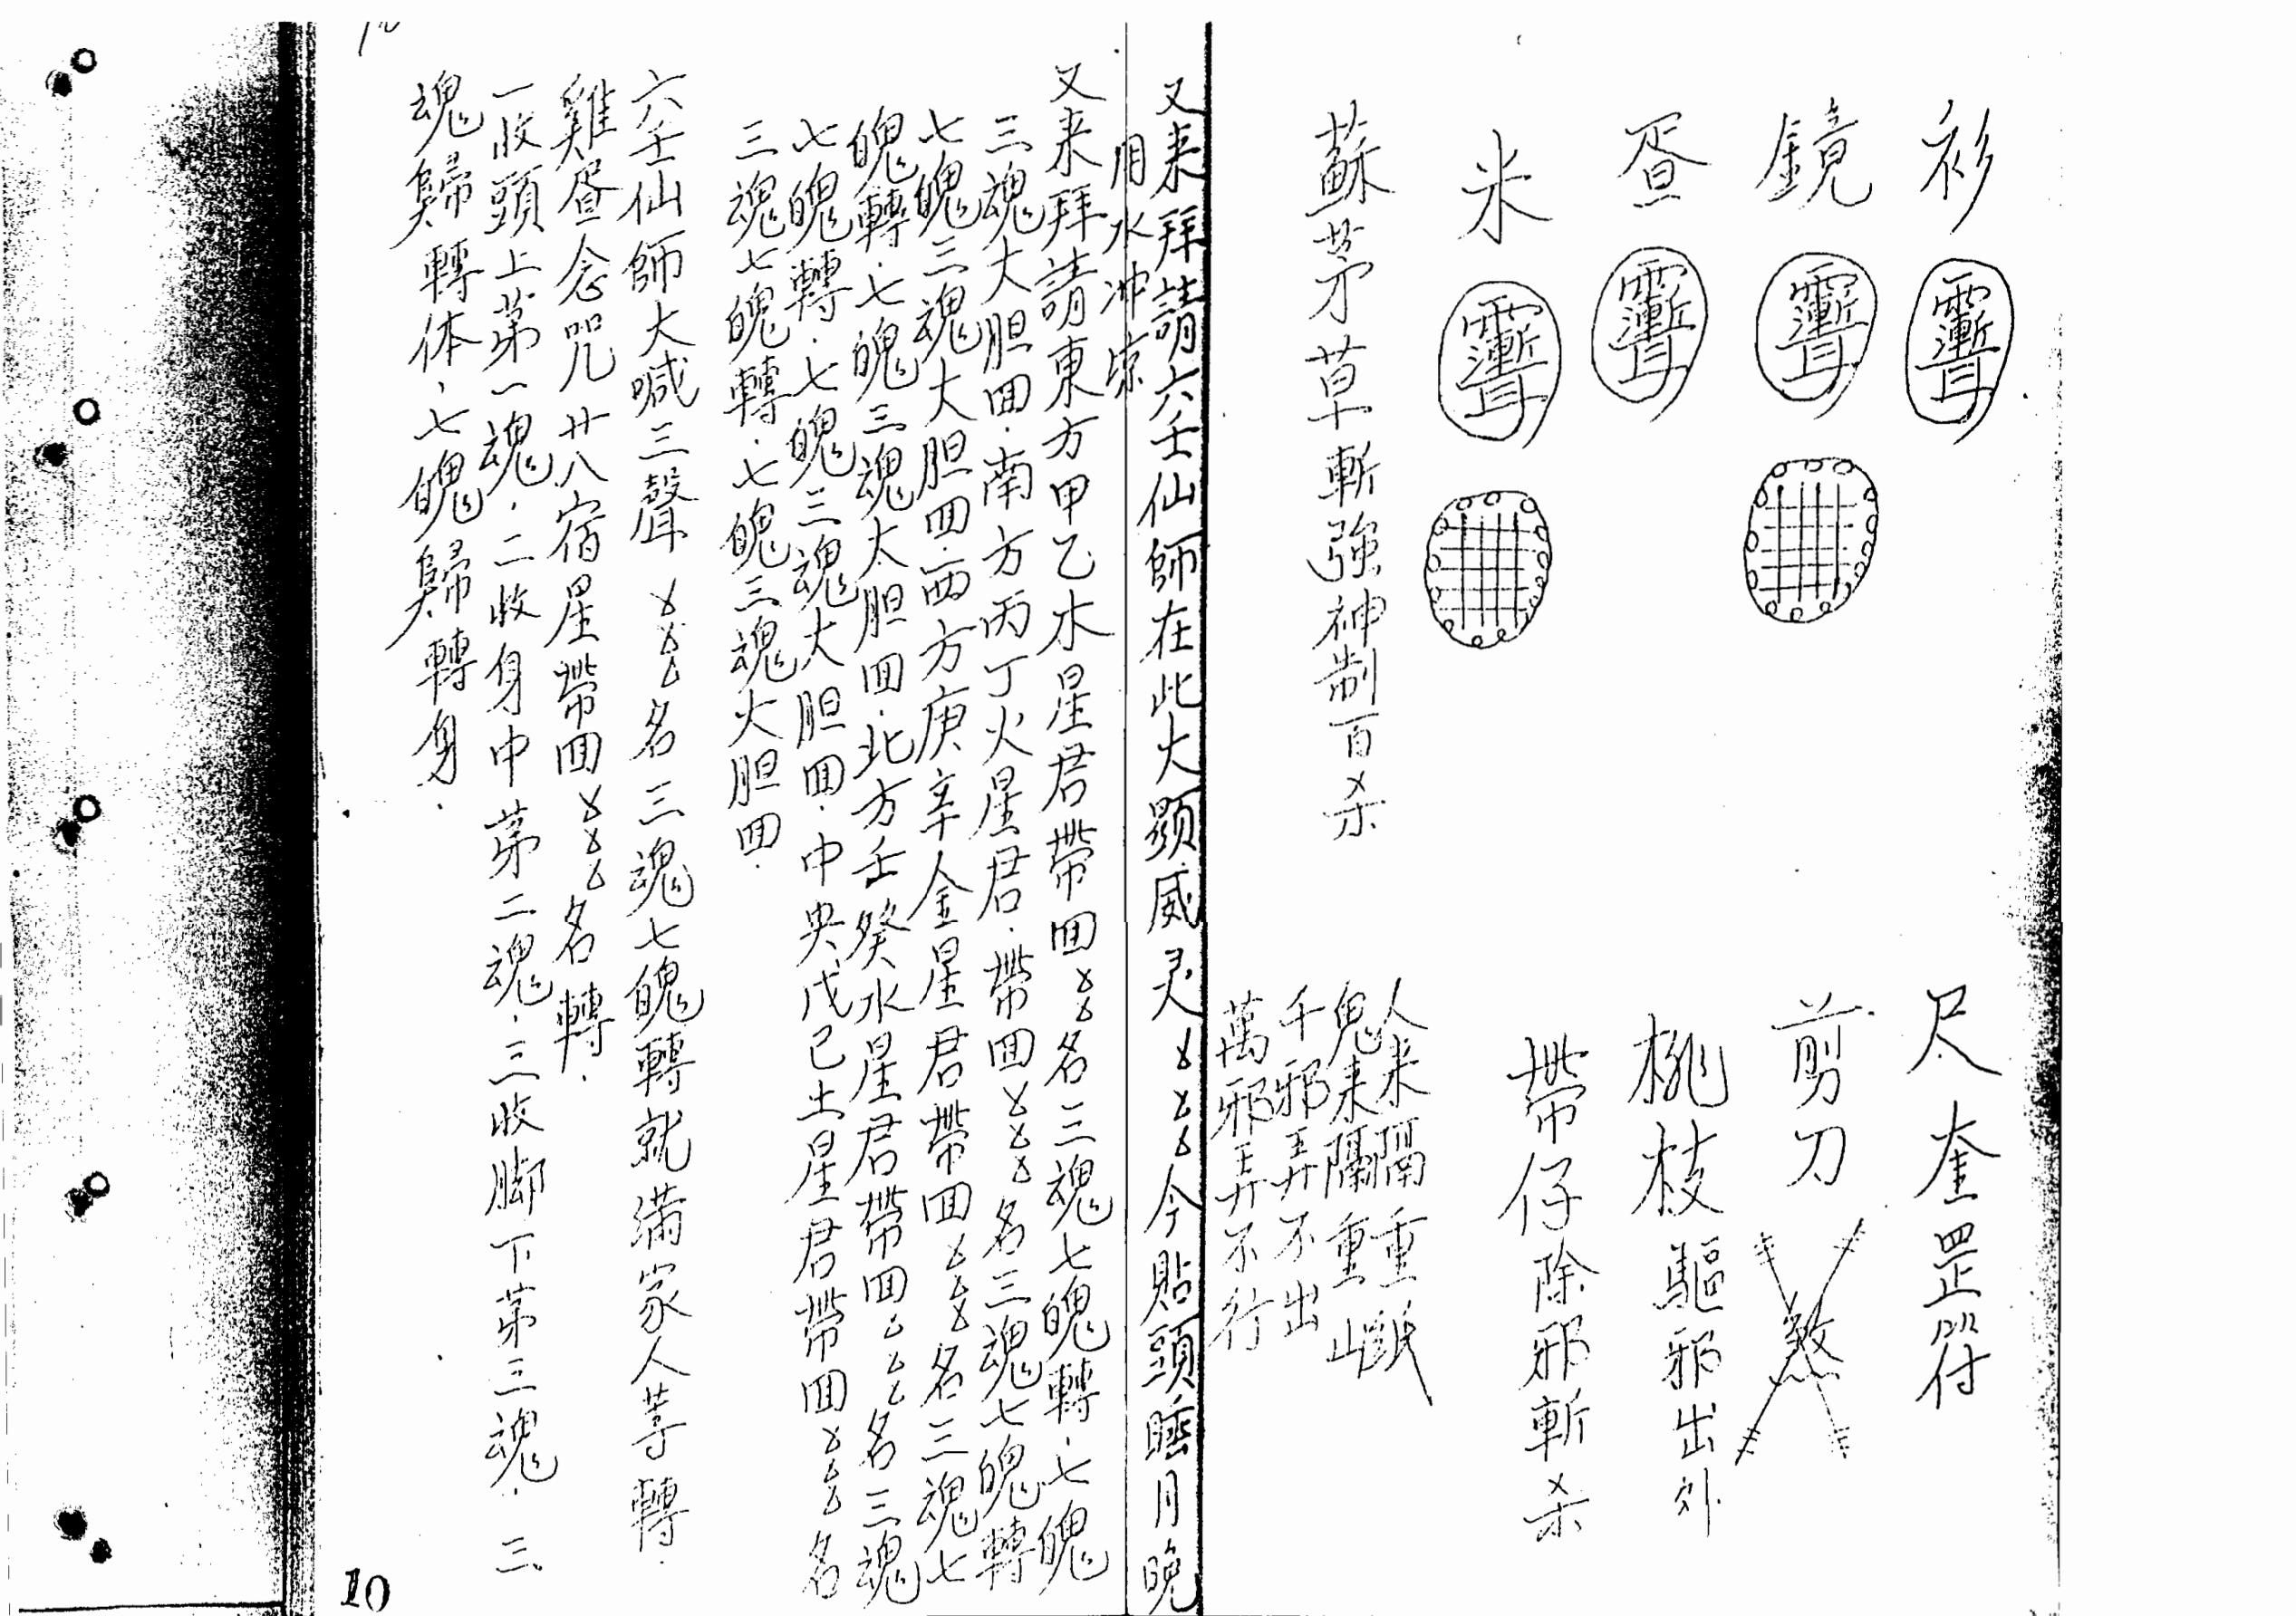 衫
鏡
昼
米
蘇茅草斬強神制百杀
尺 奎罡符
剪刀 煞
桃枝 驅邪出外
帶仔 除邪斬杀
人来隔重
鬼来隔重山
千邪弄不出
萬邪弄不行
又来拜請六壬仙師在此大顕威灵 今貼頭睡月晚
用水冲凉
又来拜請東方甲乙木星君帶回 名三魂七魄轉．七魄
三魂大胆回．南方丙丁火星君．帶回 名三魂七魄轉
七魄三魂大胆回．西方庚辛金星君帶回 名三魂七
魄轉．七魄三魂大胆回．北方壬癸水星君帶回 名三魂
七魄轉．七魄三魂大胆回．中央戊己土星君帶回 名
三魂七魄轉．七魄三魂大胆回．
六壬仙師大喊三聲 名三魂七魄轉就満家人等轉．
雞昼念咒廿八宿星帶回 名轉．
一收頭上第一魂．二收身中第二魂．三收脚下第三魂．三
魂歸轉体．七魄歸轉身．
10